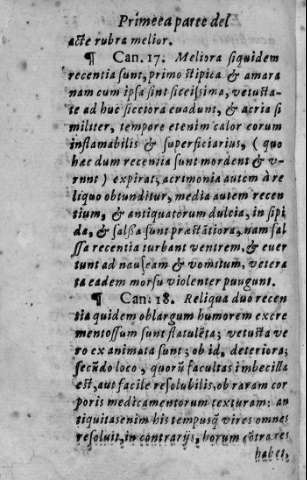 Primeea parte del
acte rubra melior.
¶ Can. 17. Meliora siquidem
recentia sunt, primo stipica & amara
nam cum ipsa sint siccissima, vetusta-
te ad huc sicciora euadunt, & acria si
militer, tempore etenim calor eorum
inflamabilis & superficiarius, (quo
hæc dum recentia sunt mordent & v-
runt) expirat, acrimonia autem à re
liquo obtunditur, media autem recen
tium, & antiquatorum dulcia, in sipi
da, & salsa sunt præstãtiora, nam sal
ssa recentia turbant ventrem, & euer
tunt ad nauseam & vomitum, vetera
ta eadem morsu violenter pungunt.
¶ Can. 18. Reliqua duo recen
tia quidem oblargum humorem excre
mentossum sunt flatulẽta; vetusta ve
ro ex animata sunt; ob id, deteriora;
secũdo loco, quorũ facultas imbecilla
est, aut facile resolubilis, ob raram cor
poris medicamentorum texturam: an
tiquitas enim his tempusq́ vires omnes
resoluit, in contrarijs, horum cõtra res
habet,